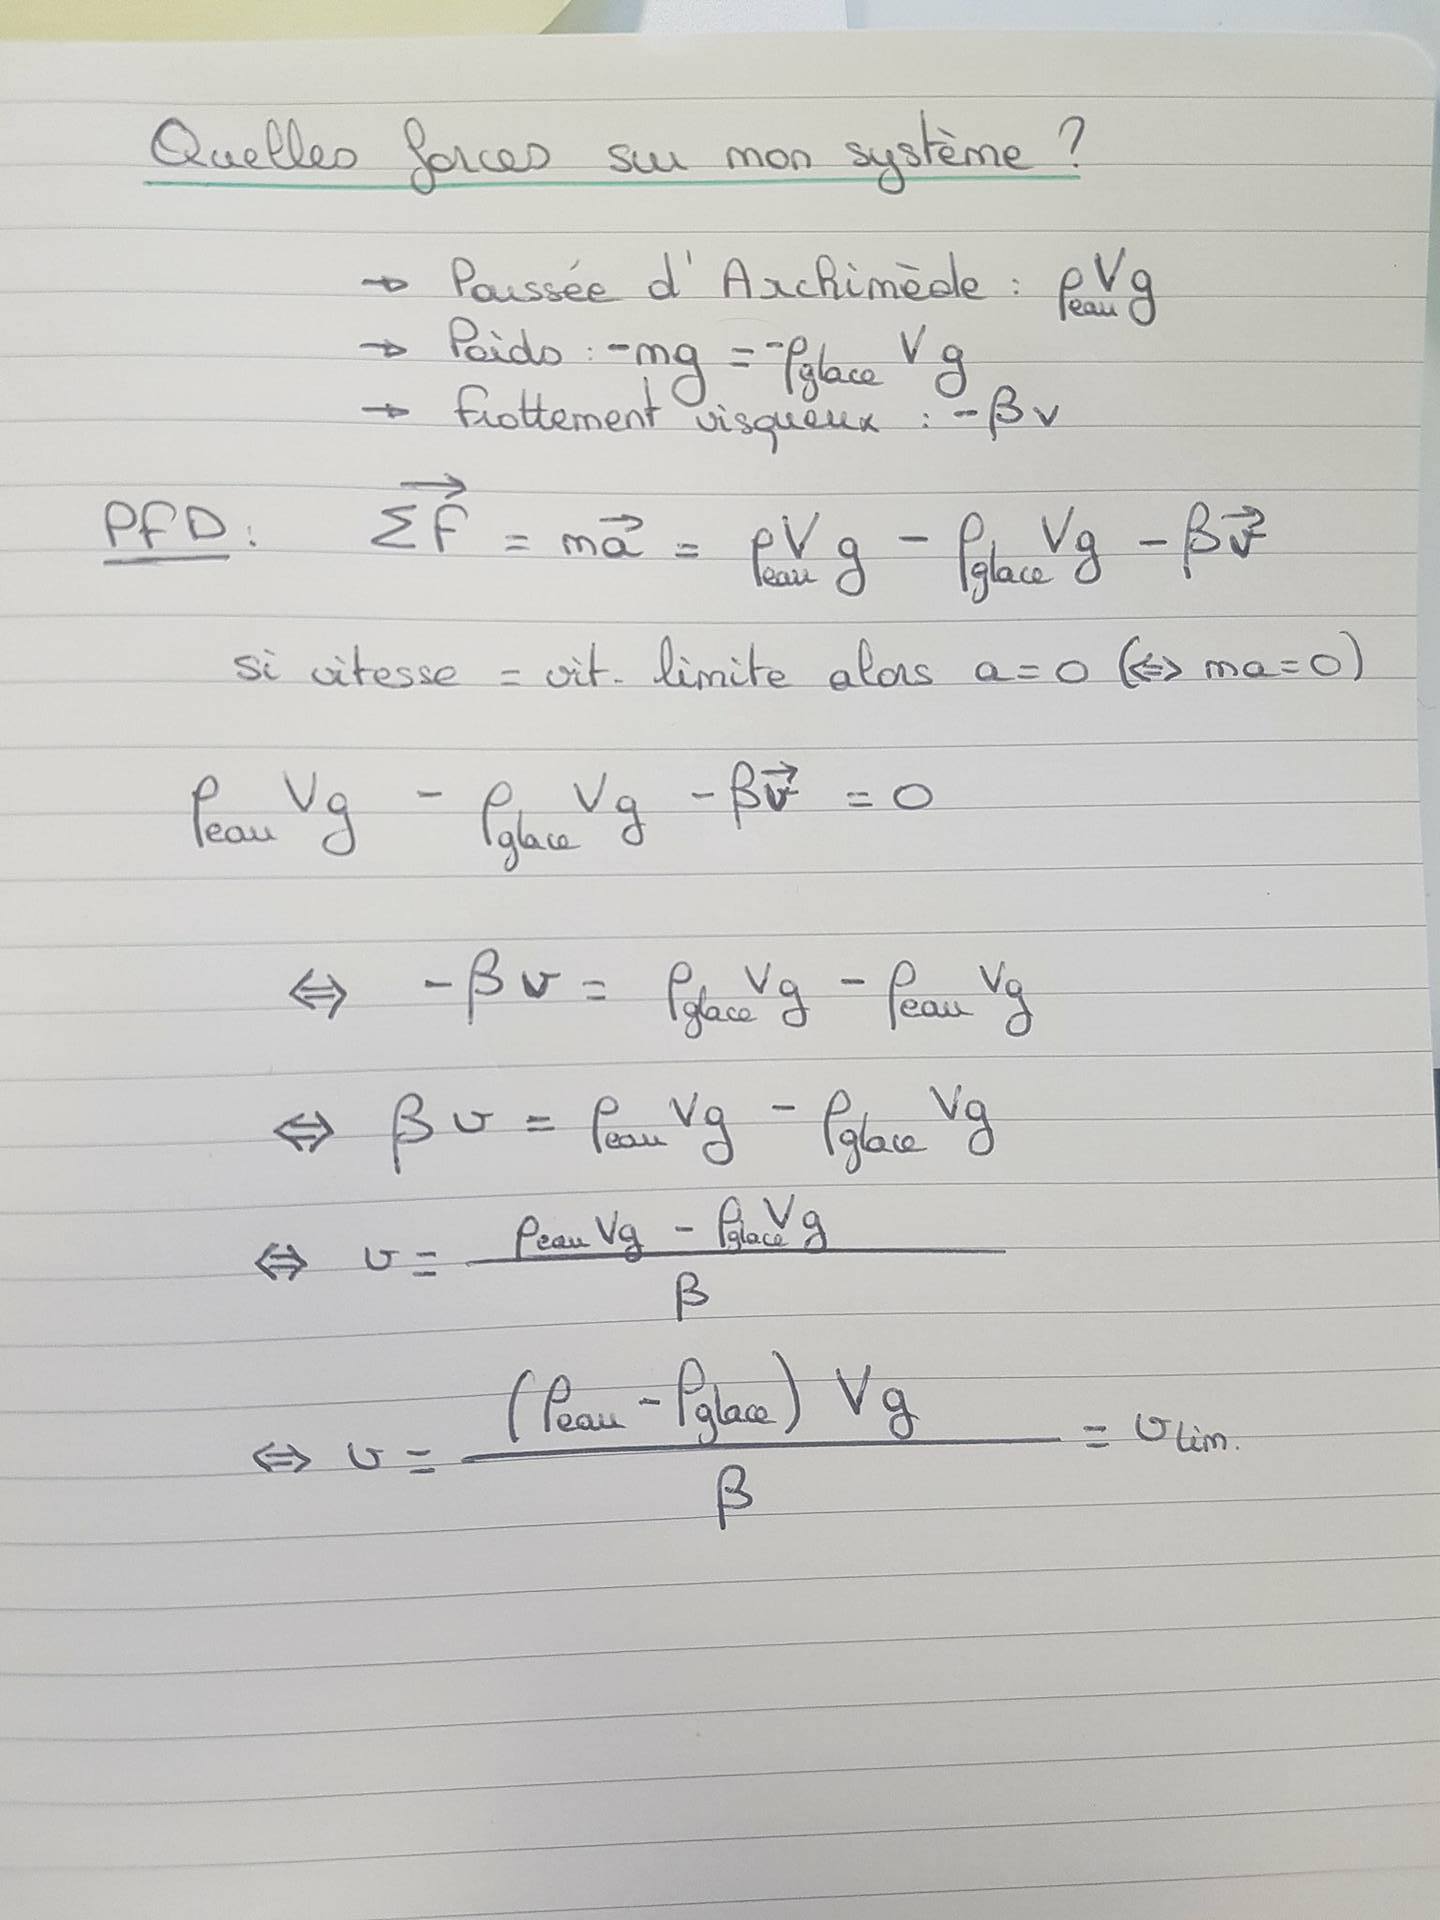 Quelles forces sur mon système ?
→ Poussée d'Archimède : ρeau Vg
→ Poids : -mg = -ρglace Vg
→ frottement visqueux : -βv
PFD : ΣF⃗ = ma⃗ = ρeau Vg - ρglace Vg - βv⃗
si vitesse = vit. limite alors a = 0 (⇔ ma = 0)
ρeau Vg - ρglace Vg - βv⃗ = 0
⇔ -βv = ρglace Vg - ρeau Vg
⇔ βv = ρeau Vg - ρglace Vg
⇔ v = ρeau Vg - ρglace Vg
β
⇔ v = (ρeau - ρglace) Vg = vlim.
β